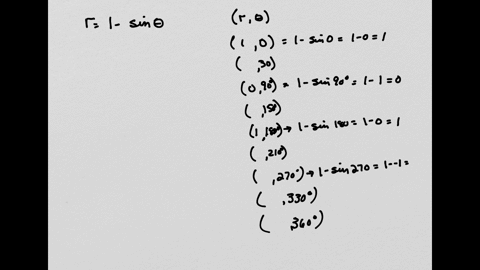 r = 1 - sin θ
(r, θ)
(1, 0) = 1 - sin 0 = 1 - 0 = 1
( , 30)
(0, 90°) = 1 - sin 90° = 1 - 1 = 0
( , 150°)
(1, 180°) → 1 - sin 180 = 1 - 0 = 1
( , 210°)
( , 270°) → 1 - sin 270 = 1 - -1 =
( , 330°)
( , 360°)